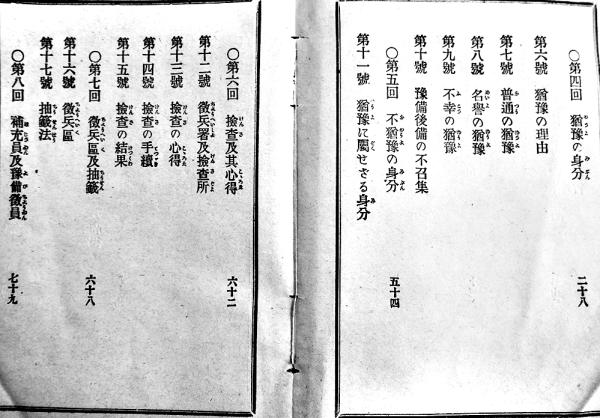 〇第四回 猶豫の身分 二十八
第六號 猶豫の理由
第七號 普通の猶豫
第八號 名譽の猶豫
第九號 不幸の猶豫
第十號 豫備後備の不召集
〇第五回 不猶豫の身分 五十四
第十一號 猶豫に屬せざる身分
〇第六回 撿查及其心得 六十二
第十二號 徵兵署及撿查所
第十三號 撿查の心得
第十四號 撿查の手續
第十五號 撿查の結果
〇第七回 徵兵區及抽籤 六十八
第十六號 徵兵區
第十七號 抽籤法
〇第八回 補充員及豫備徵員 七十九